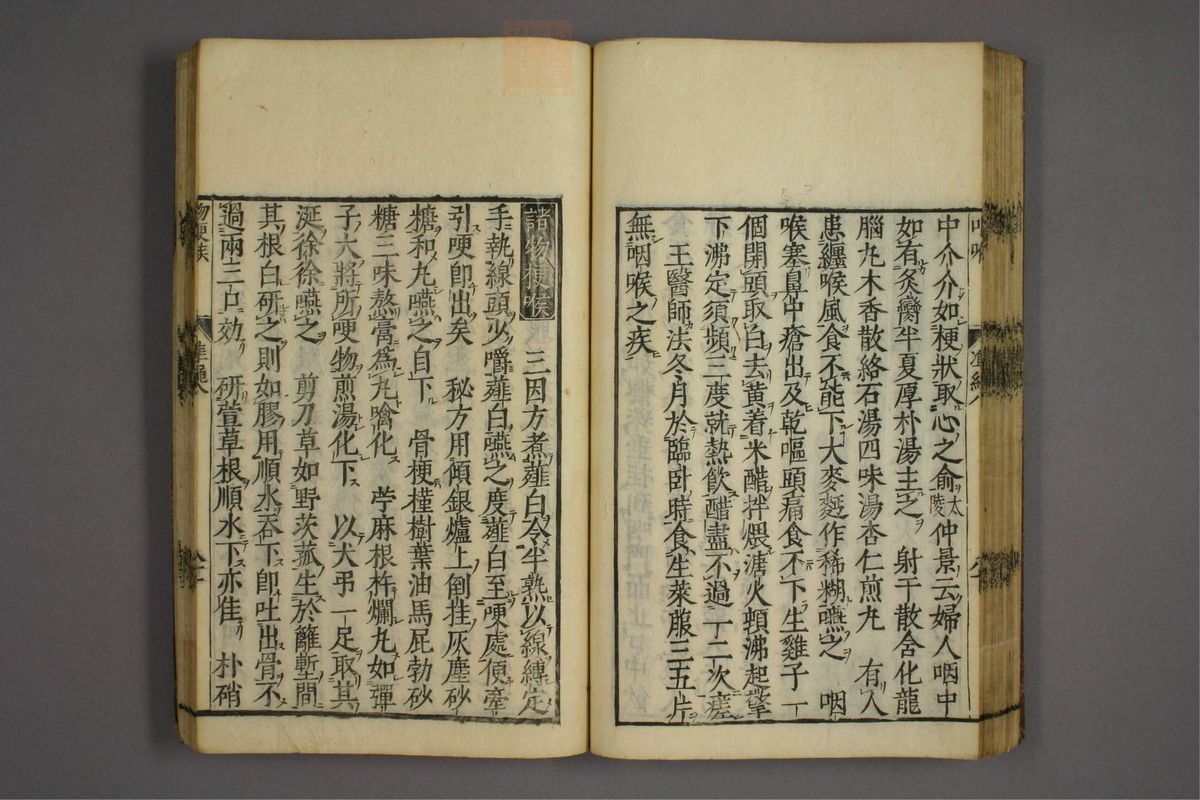 中介介如梗狀取心之俞太陵仲景云婦人咽中
如有炙臠半夏厚朴湯主之　射干散含化龍
腦丸木香散絡石湯四味湯杏仁煎丸　有人
患纏喉風食不能下大麥麪作稀糊嚥之　咽
喉塞鼻中瘡出及乾嘔頭痛食不下生雞子一
個開頭取白去黃着米醋拌煨溏火頓沸起擎
下沸定須頻三度就熱飲醋盡不過一二次瘥
王醫師法冬月於臨卧時食生萊菔三五片
無咽喉之疾
諸物梗喉　三因方煮薤白令半熟以線縛定
手執線頭少嚼薤白嚥之度薤白至哽處便牽
引哽即出矣　秘方用傾銀爐上倒挂灰塵砂
糖和丸嚥之自下　骨梗橦樹葉油馬屁勃砂
糖三味熬膏為丸噙化　苧麻根杵爛丸如彈
子大將所哽物煎湯化下　以犬弔一足取其
涎徐徐嚥之　剪刀草如野茨菰生於籬塹間
其根白研之則如膠用順水吞下即吐出骨不
過兩三口効　研萱草根順水下亦佳　朴硝
物哽疾
準繩八